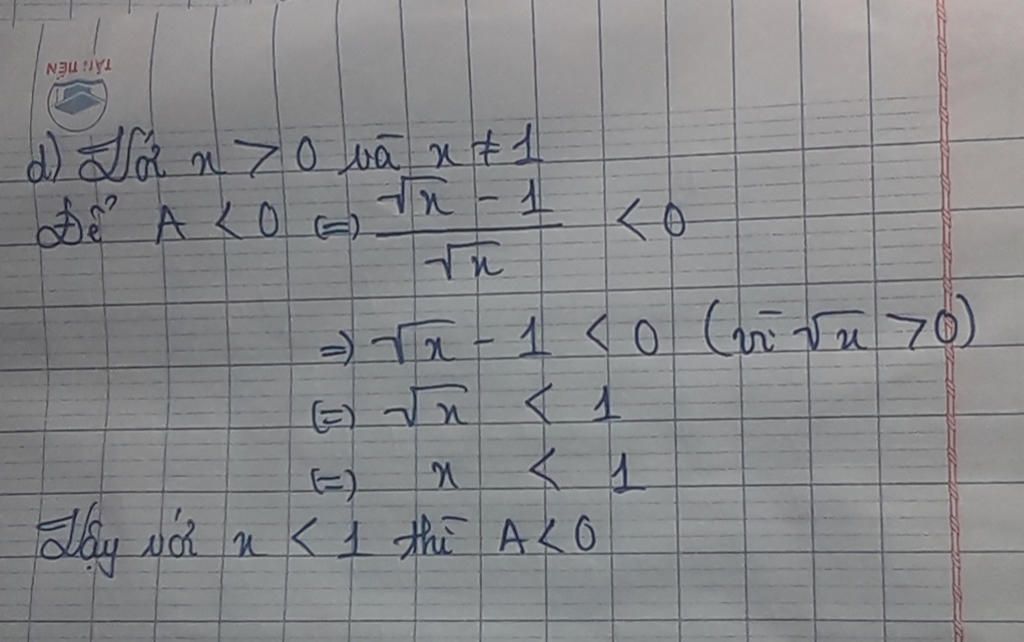 TÂN TIẾN
d) Với x > 0 và x ≠ 1
Để A < 0 (=) \frac{\sqrt{x} - 1}{\sqrt{x}} < 0
=) √x - 1 < 0 (vì √x > 0)
(=) √x < 1
(=) x < 1
Vậy với x < 1 thì A < 0